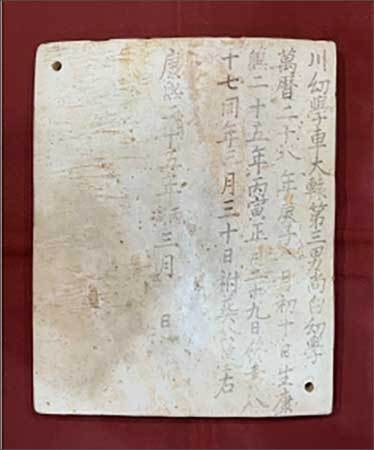 川幼學車大軫第三男尚白幼學
萬曆二十八年庚子 月初十日生康
熙二十五年丙寅正月二十九日 八
十七同年三月三十日祔葬 右
康熙二十五年丙 三月 日